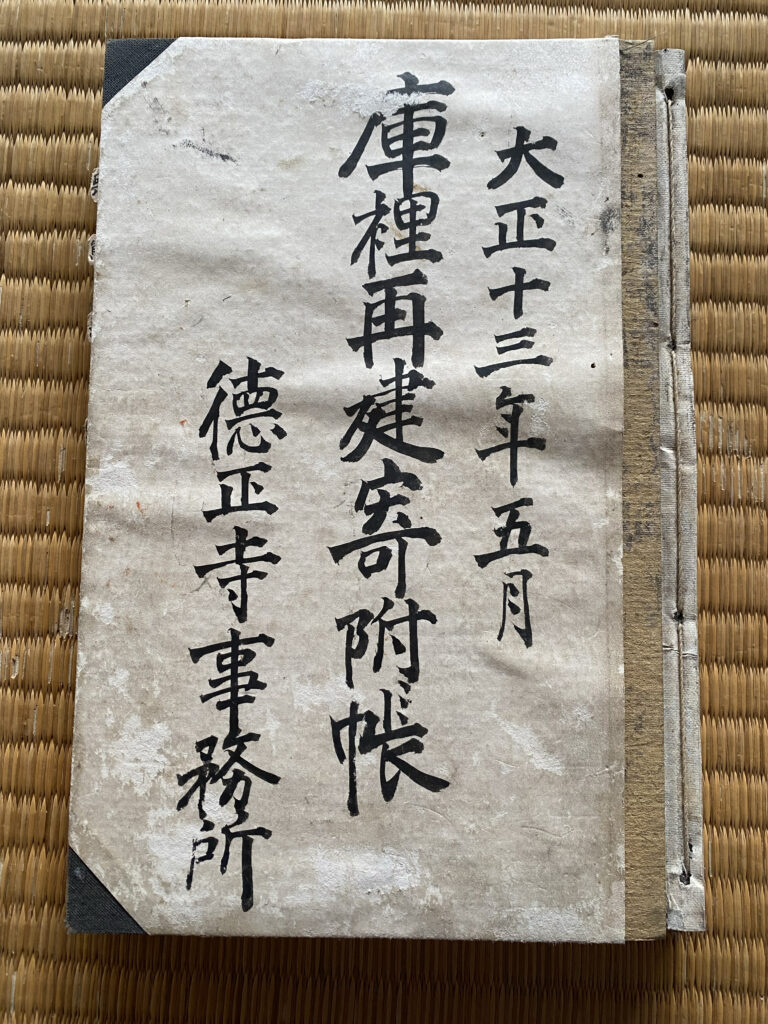 大正十三年五月
庫裡再建寄附帳
徳正寺事務所